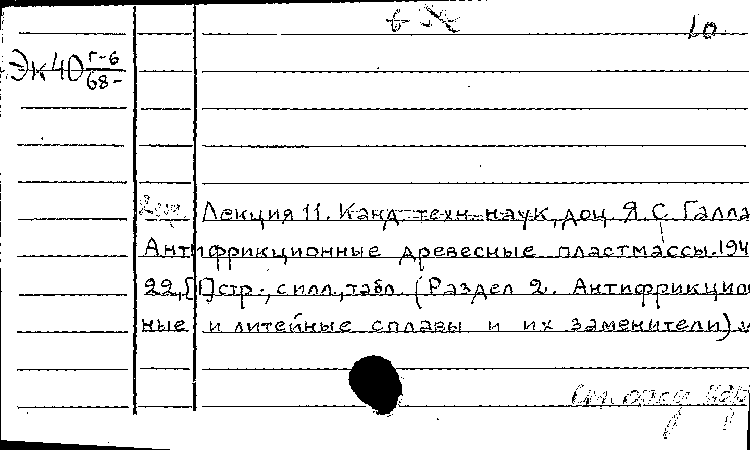 10
Эк40 г-6
68-
Лекция 11. Канд техн наук, доц Я. С. Галла
Антифрикционные древесные пластмассы. 194
22, [1] стр., с илл., табл. (Раздел 2. Антифрикцион
ные и литейные сплавы и их заменители)
см. след